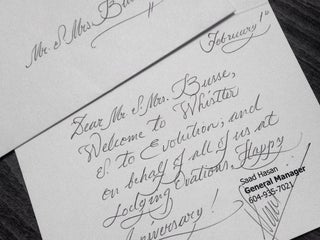 Mr. & Mrs. Busse
February 1st
Dear Mr & Mrs. Busse,
Welcome to Whistler
& to Evolution; and
on behalf of all of us at
Lodging Ovations, Happy
Anniversary!
Saad Hasan
General Manager
604-935-7021